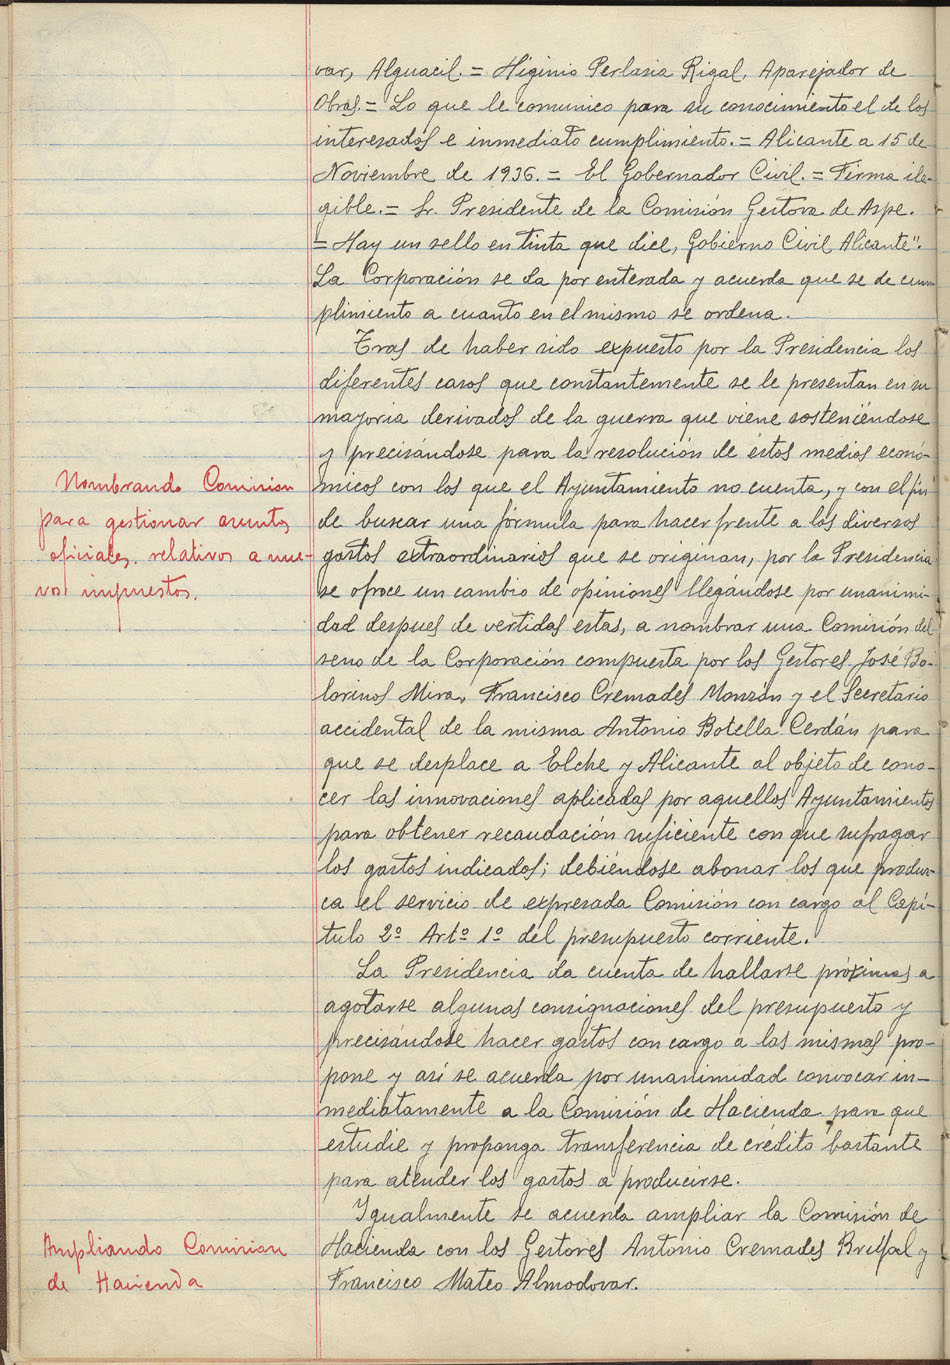 var, Alguacil.= Higinio Perlasia Rigal, Aparejador de
Obras.= Lo que le comunico para su conocimiento el de los
interesados e inmediato cumplimiento.= Alicante a 15 de
Noviembre de 1936.= El Gobernador Civil.= Firma ile-
gible.= Sr. Presidente de la Comisión Gestora de Aspe.
= Hay un sello en tinta que dice, Gobierno Civil Alicante".
La Corporación se da por enterada y acuerda que se de cum
plimiento a cuanto en el mismo se ordena.
Tras de haber sido expuesto por la Presidencia los
diferentes casos que constantemente se le presentan en su
mayoria derivados de la guerra que viene sosteniéndose
y precisándose para la resolución de éstos medios econó-
Nombrando Comision
micos con los que el Ayuntamiento no cuenta, y con el fin
para gestionar asuntos
de buscar una fórmula para hacer frente a los diversos
oficiales relativos a nue-
gastos extraordinarios que se originan, por la Presidencia
vos impuestos.
se ofrece un cambio de opiniones llegándose por unanimi-
dad despues de vertidas estas, a nombrar una Comisión del
seno de la Corporación compuesta por los Gestores José Bo-
larinos Mira, Francisco Cremades Monzón y el Secretario
accidental de la misma Antonio Botella Cerdán para
que se desplace a Elche y Alicante al objeto de cono-
cer las innovaciones aplicadas por aquellos Ayuntamientos
para obtener recaudación suficiente con que sufragar
los gastos indicados; debiéndose abonar los que produz-
ca el servicio de expresada Comisión con cargo al Capí-
tulo 2º Artº 1º del presupuesto corriente.
La Presidencia da cuenta de hallarse próximas a
agotarse algunas consignaciones del presupuesto y
precisándose hacer gastos con cargo a las mismas pro-
pone y así se acuerda por unanimidad convocar in-
mediatamente a la Comisión de Hacienda para que
estudie y proponga transferencia de crédito bastante
para atender los gastos a producirse.
Igualmente se acuerda ampliar la Comisión de
Ampliando Comision
Hacienda con los Gestores Antonio Cremades y
de Hacienda
Francisco Mateo Almodovar.